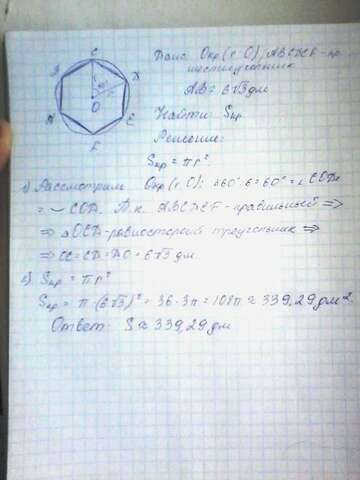 C
B
D
O
A
E
F
Дано: Окр (т. O); ABCDEF - пр.
шестиугольник
AB = 6√3 дм
Найти: Sкр
Решение:
Sкр = πr²
1) Рассмотрим Окр (т. O); 360° : 6 = 60° = ∠COD =
= ◡COD. Т.к. ABCDEF - правильный ⇒
⇒ △OCD - равносторонний треугольник ⇒
⇒ OC = CD = DO = 6√3 дм
2) Sкр = πr²
Sкр = π · (6√3)² = 36 · 3π = 108π ≈ 339,29 дм²
Ответ: S ≈ 339,29 дм